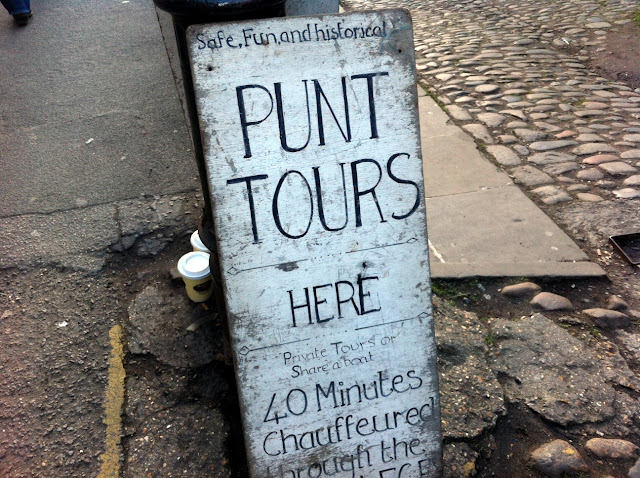 Safe, Fun, and historical
PUNT
TOURS
HERE
Private Tours or
Share a boat
40 Minutes
Chauffeured
through the